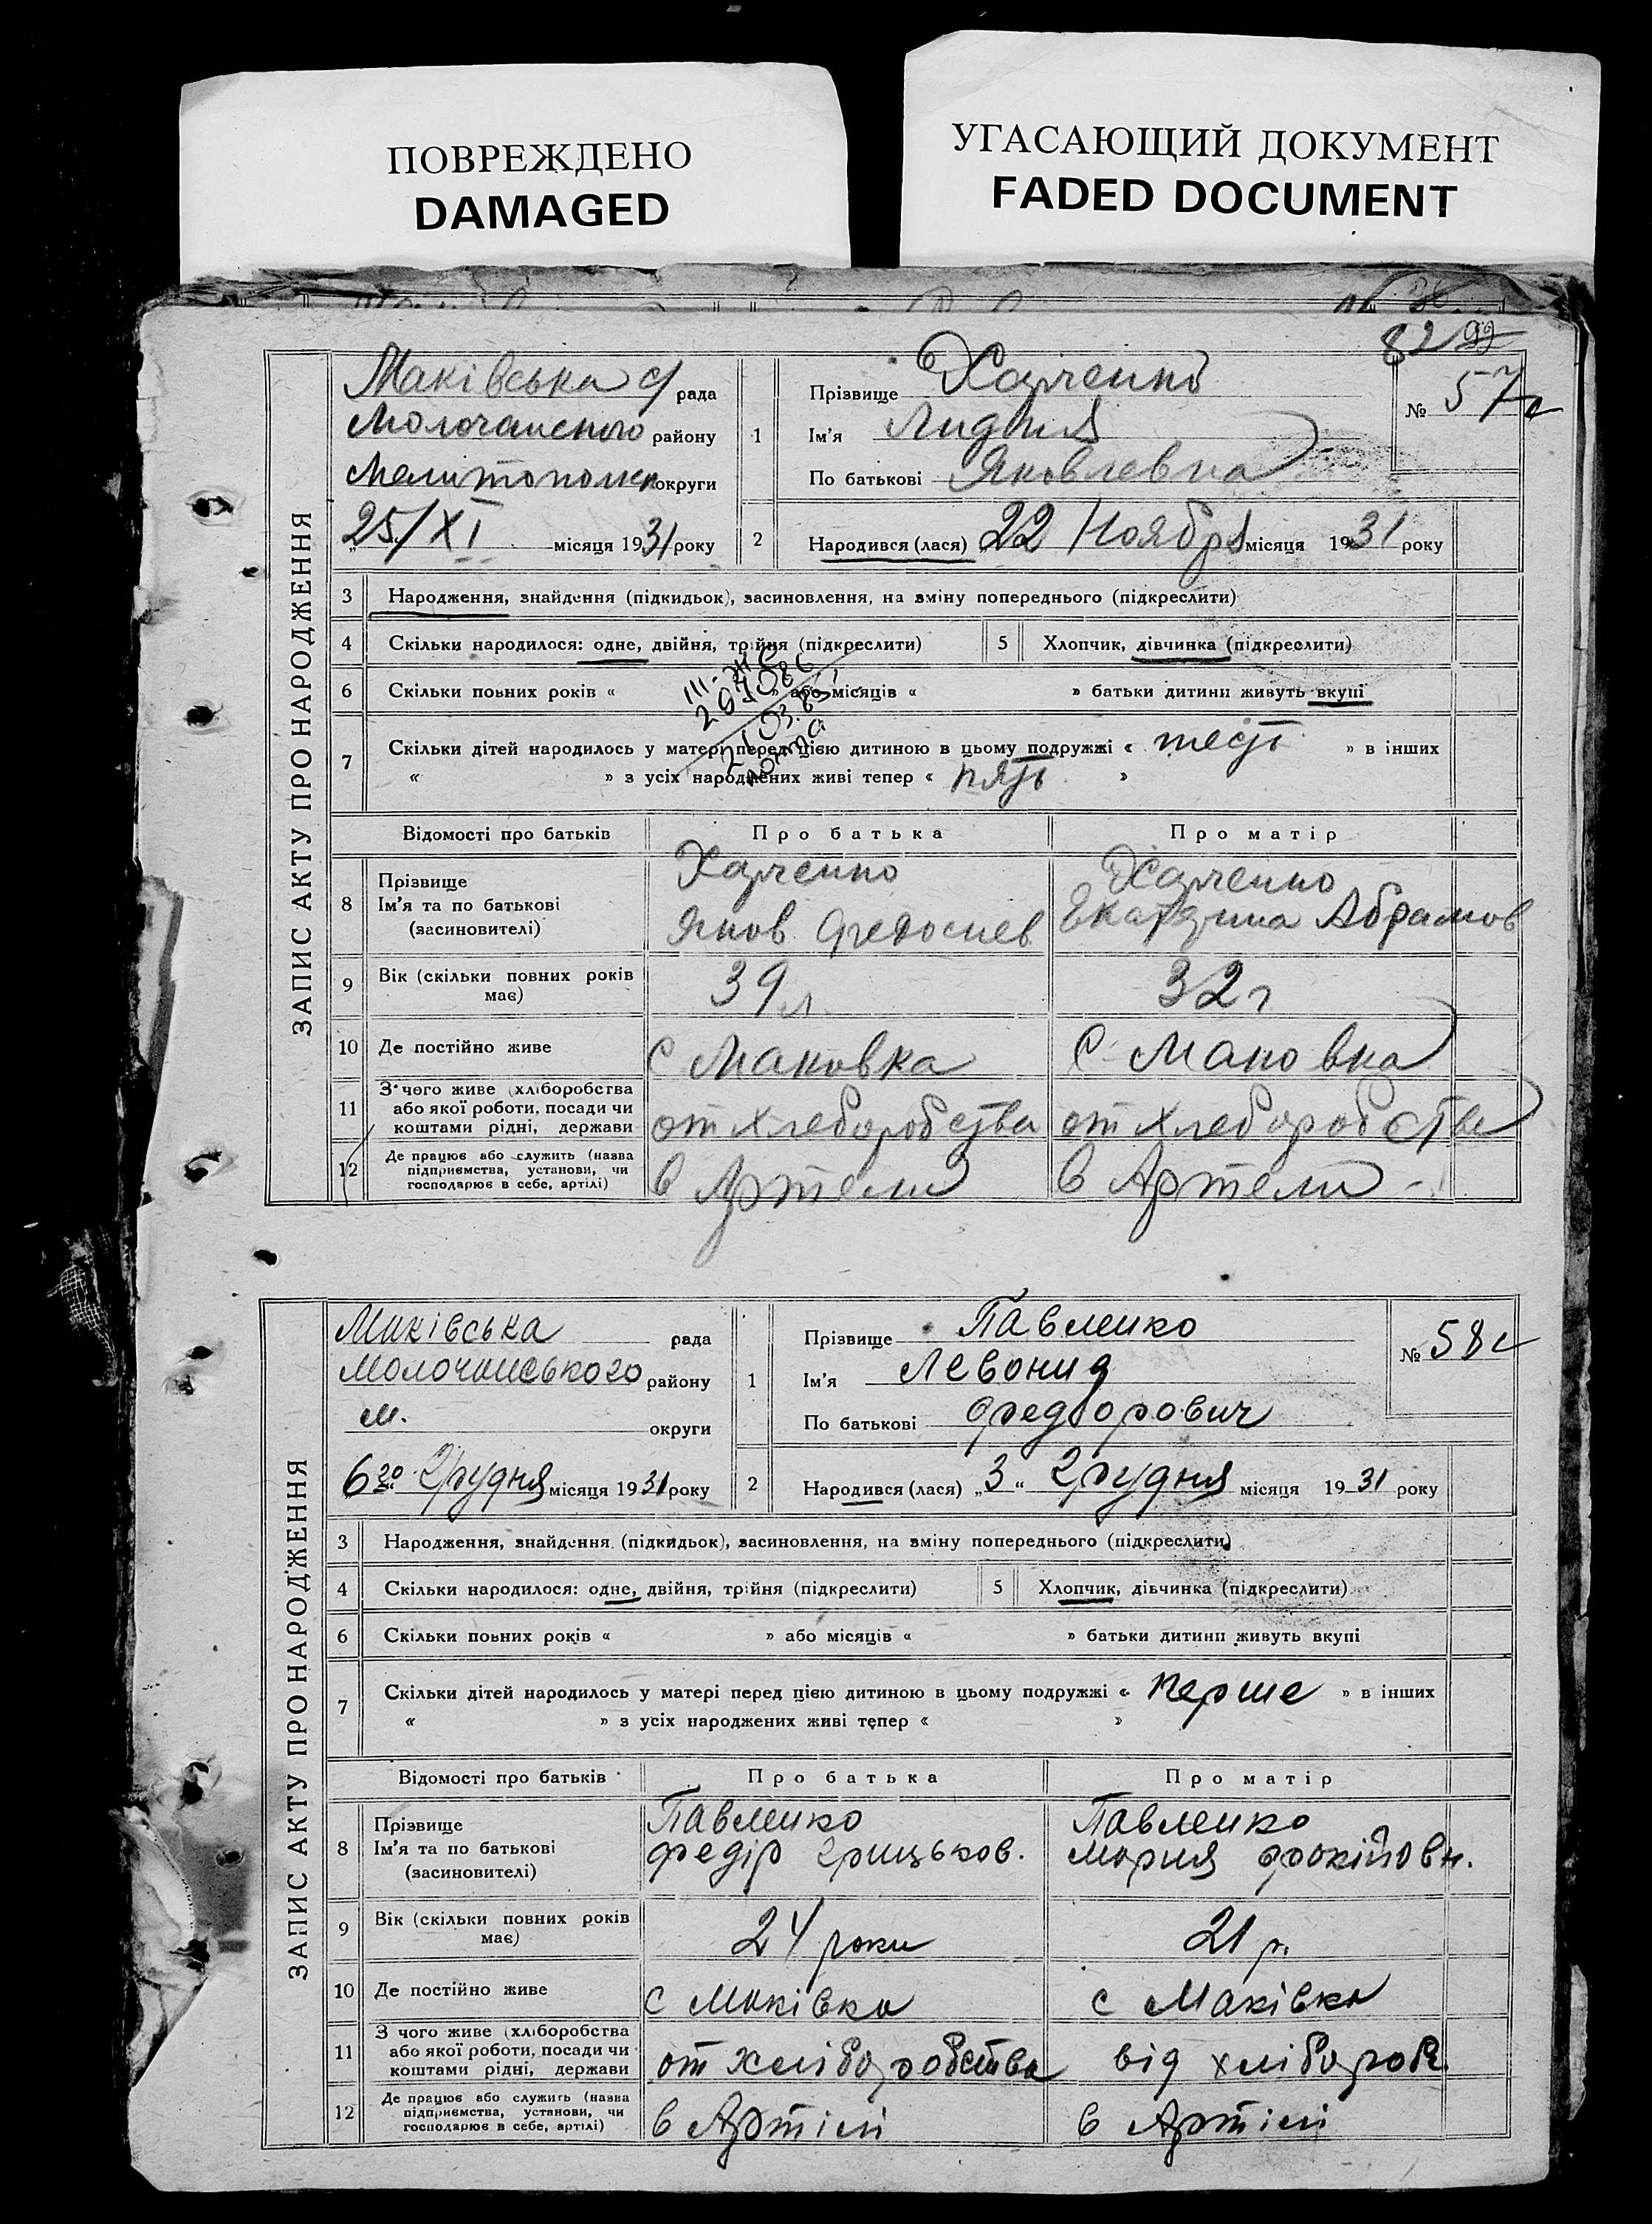 ПОВРЕЖДЕНО
DAMAGED
УГАСАЮЩИЙ ДОКУМЕНТ
FADED DOCUMENT
82
ЗАПИС АКТУ ПРО НАРОДЖЕННЯ
Маківська с/ рада
Молочанського району
Мелитополь округи
25/XI місяця 1931 року
1 Прізвище Харченко
Ім'я Лидия
По батькові Яковлевна
№ 57
2 Народився (лася) 22 Ноября місяця 1931 року
3 Народження, знайдення (підкидьок), засиновлення, на зміну попереднього (підкреслити)
4 Скільки народилося: одне, двійня, трійня (підкреслити) 5 Хлопчик, дівчинка (підкреслити)
6 Скільки повних років « » або місяців « » батьки дитини живуть вкупі
III-ЖС
21.03.85
7 Скільки дітей народилось у матері перед цією дитиною в цьому подружжі « шесть » в інших
« » з усіх народжених живі тепер « пять »
Відомості про батьків Про батька Про матір
8 Прізвище Харченко Харченко
Ім'я та по батькові Яков Федосиев Екатерина Абрамов
(засиновителі)
9 Вік (скільки повних років має) 39 л. 32 г
10 Де постійно живе с Маковка с Маковка
11 З чого живе (хліборобства
або якої роботи, посади чи
коштами рідні, держави от хлеборобства от хлеборобства
12 Де працює або служить (назва
підприємства, установи, чи
господарює в себе, артілі) в Артели в Артели -
ЗАПИС АКТУ ПРО НАРОДЖЕННЯ
Маківська рада
Молочанського району
М. округи
6го Грудня місяця 1931 року
1 Прізвище Павленко
Ім'я Левонид
По батькові Федорович
№ 58
2 Народився (лася) „3“ Грудня місяця 1931 року
3 Народження, знайдення (підкидьок), засиновлення, на зміну попереднього (підкреслити)
4 Скільки народилося: одне, двійня, трійня (підкреслити) 5 Хлопчик, дівчинка (підкреслити)
6 Скільки повних років « » або місяців « » батьки дитини живуть вкупі
7 Скільки дітей народилось у матері перед цією дитиною в цьому подружжі « перше » в інших
« » з усіх народжених живі тепер « »
Відомості про батьків Про батька Про матір
8 Прізвище Павленко Павленко
Ім'я та по батькові Федір Грицьков. Мария
(засиновителі)
9 Вік (скільки повних років має) 24 роки 21 р.
10 Де постійно живе с Маківка с Маківка
11 З чого живе (хліборобства
або якої роботи, посади чи
коштами рідні, держави от хліборобства від хлібороб.
12 Де працює або служить (назва
підприємства, установи, чи
господарює в себе, артілі) в Артілі в Артілі